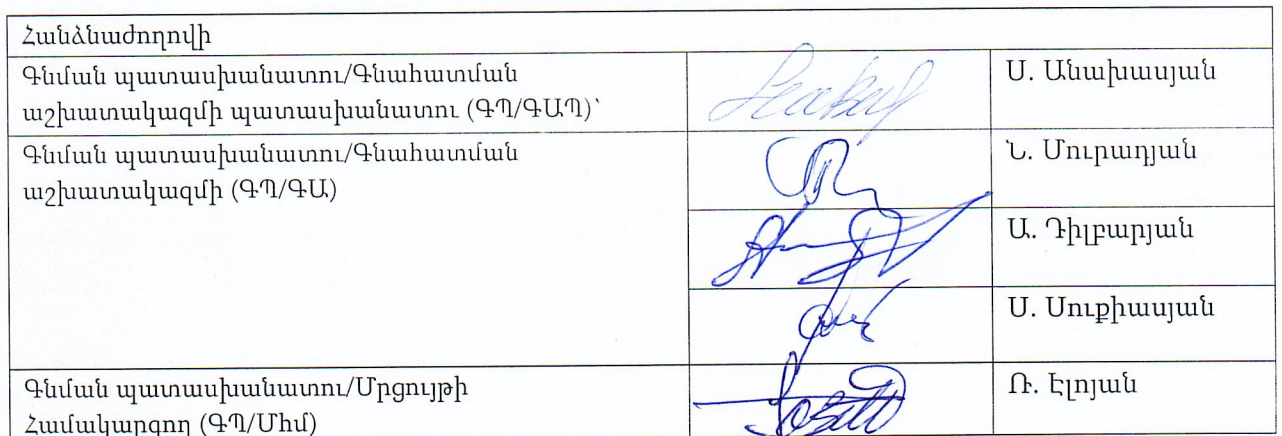 Հանձնաժողովի
Գնման պատասխանատու/Գնահատման
աշխատակազմի պատասխանատու (ԳՊ/ԳԱՊ)՝
Ս. Անախասյան
Գնման պատասխանատու/Գնահատման
աշխատակազմի (ԳՊ/ԳԱ)
Ն. Մուրադյան
Ա. Դիլբարյան
Ս. Սուքիասյան
Գնման պատասխանատու/Մրցույթի
Համակարգող (ԳՊ/Մհմ)
Ռ. Էլոյան